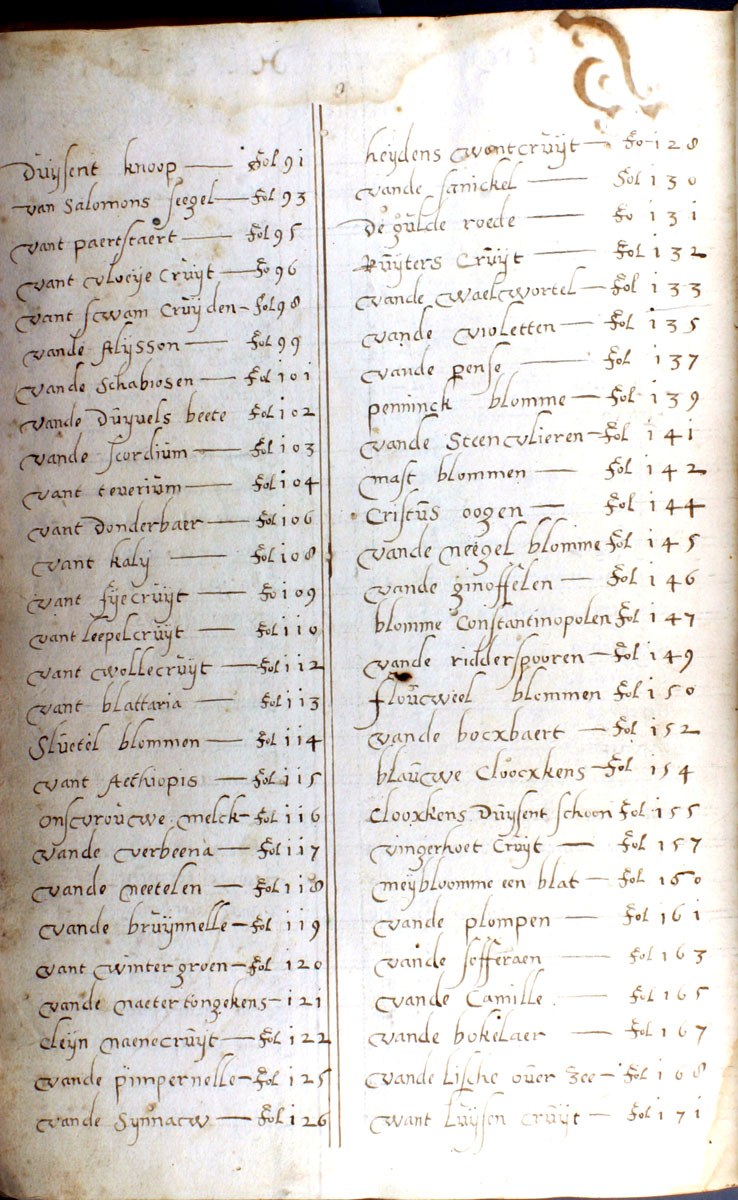 Duijsent knoop — Fol 91
van Salomons seegel — Fol 93
vant paertstaert — Fol 95
vant vloeije Cruijt — Fo 96
vant swam Cruijden — Fol 98
vande Alijsson — Fol 99
vande Schabiosen — Fol 101
vande Duijvels beete Fol 102
vande scordium — Fol 103
vant teuerium — Fol 104
vant Donderbaer — Fol 106
vant kalij — Fol 108
vant fijecruijt — Fo 109
vant leepelcruijt — Fol 110
vant wollecruijt — Fol 112
vant blattaria — Fol 113
Sluetel blommen — Fol 114
vant Aethiopis — Fol 115
onsvrouwe melck — Fol 116
vande verbeena — Fol 117
vande neetelen — Fol 118
vande bruijnnelle — Fol 119
vant winter groen — Fol 120
vande naetertongekens — 121
Cleijn naenecruijt — Fol 122
vande pimpernelle — Fol 125
vande Synnacw — Fol 126
heijdens wontcruijt — Fo 128
vande sanickel — Fol 130
De gulde roede — Fo 131
Ruijters Cruijt — Fol 132
vande waelwortel — Fol 133
vande violetten — Fol 135
vande pense — Fol 137
penninck blomme — Fol 139
vande Steenvlieren — Fol 141
mast blommen — Fol 142
Cristus oogen — Fol 144
vande neegel blomme Fol 145
vande ginoffelen — Fol 146
blomme Constantinopolen Fol 147
vande ridderspooren — Fol 149
flouweel blommen Fol 150
vande bocxbaert — Fol 152
blauwe Cloocxkens — Fol 154
Clooxkens Duijsent schoon Fol 155
vingerhoet Cruijt — Fol 157
meijbloomme een blat — Fol 160
vande plompen — Fol 161
vande sofferaen — Fol 163
vande Camille — Fol 165
vande bokelaer — Fol 167
vande Lische ouer Zee — Fol 168
want Luijsen Cruijt — Fol 171